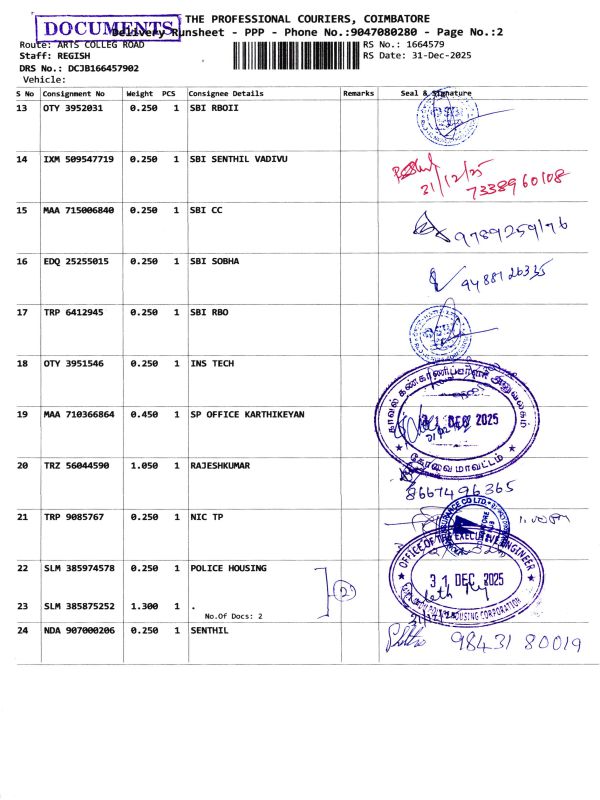 DOCUMENTS
THE PROFESSIONAL COURIERS, COIMBATORE
Delivery Runsheet - PPP - Phone No.:9047080280 - Page No.:2
Route: ARTS COLLEG ROAD
RS No.: 1664579
Staff: REGISH
RS Date: 31-Dec-2025
DRS No.: DCJB166457902
Vehicle:
S No Consignment No Weight PCS Consignee Details Remarks Seal & Signature
13 OTY 3952031 0.250 1 SBI RBOII
14 IXM 509547719 0.250 1 SBI SENTHIL VADIVU
21/12/25
7338960108
15 MAA 715006840 0.250 1 SBI CC
9789259176
16 EDQ 25255015 0.250 1 SBI SOBHA
9488126335
17 TRP 6412945 0.250 1 SBI RBO
18 OTY 3951546 0.250 1 INS TECH
காவல் கண்காணிப்பாளர் அலுவலகம்
19 MAA 710366864 0.450 1 SP OFFICE KARTHIKEYAN
31 DEC 2025
கோவை மாவட்டம்
20 TRZ 56044590 1.050 1 RAJESHKUMAR
8667496365
21 TRP 9085767 0.250 1 NIC TP
OFFICE OF THE EXECUTIVE ENGINEER
22 SLM 385974578 0.250 1 POLICE HOUSING
31 DEC 2025
2
HOUSING CORPORATION
23 SLM 385875252 1.300 1 .
No.Of Docs: 2
24 NDA 907000206 0.250 1 SENTHIL
98431 80019